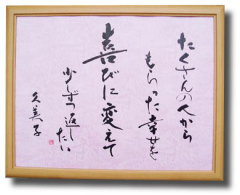 たくさんの人から
もらった幸せを
喜びに変えて
少しずつ返したい
久美子